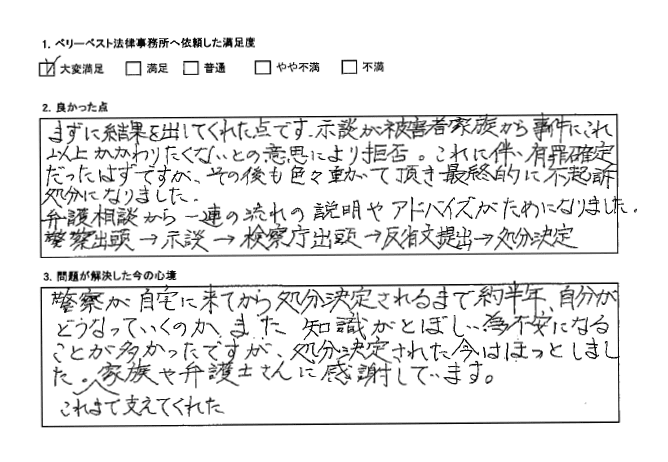 1. ベリーベスト法律事務所へ依頼した満足度
☑ 大変満足 □ 満足 □ 普通 □ やや不満 □ 不満
2. 良かった点
まずに結果を出してくれた点です。示談が被害者家族から事件にこれ
以上かかわりたくないとの意思により拒否。これに伴い有罪確定
だったはずですが、その後も色々動いて頂き最終的に不起訴
処分になりました。
弁護相談から一連の流れの説明やアドバイスがためになりました。
警察出頭→示談→検察庁出頭→反省文提出→処分決定
3. 問題が解決した今の心境
警察が自宅に来てから処分決定されるまで約半年、自分が
どうなっていくのか、また、知識がとぼしい為不安になる
ことが多かったですが、処分決定された今はほっとしまし
た。家族や弁護士さんに感謝しています。
これまで支えてくれた